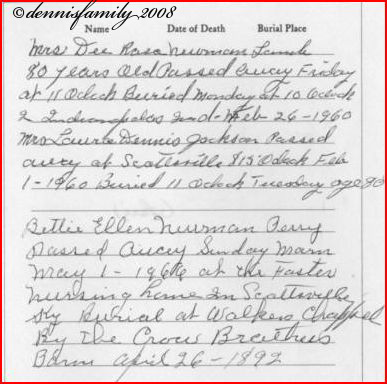 ©dennisfamily 2008
Name Date of Death Burial Place
Mrs Dee Rosa Newman Lamb
80 years Old Passed Away Friday
at 11 Oclock Buried Monday at 10 Oclock
Ind - Feb 26 - 1960
Mrs Laura Dennis Jackson Passed
away at Scottsville 815 Oclock Feb
1 - 1960 Buried 11 Oclock Tuesday age 90
Bettie Ellen Newman Perry
Passed Away Sunday Morn
May 1 - 1966 at the
Nursing home In Scottsville
Ky Burial at Walkers Chappel
By The Crow Brothers
Born April 26 - 1892